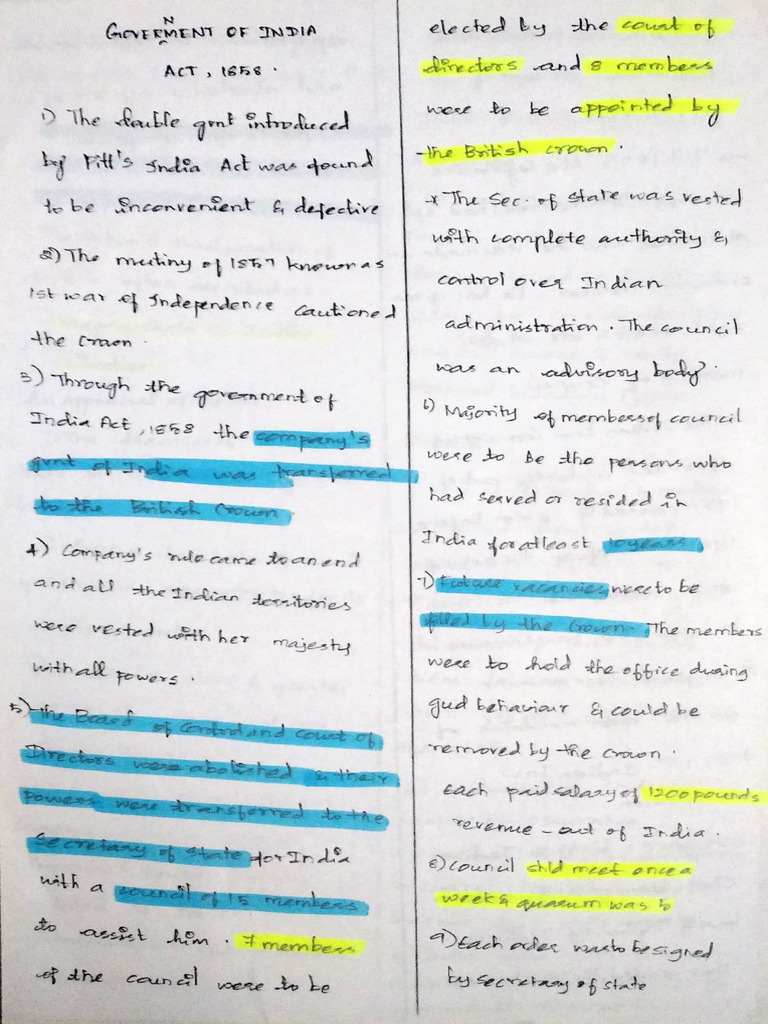 GOVERNMENT OF INDIA
ACT, 1858.
1) The double gvnt introduced
by Pitt's India Act was found
to be inconvenient & defective
2) The mutiny of 1857 known as
1st war of Independence cautioned
the crown.
3) Through the government of
India Act, 1858 the company's
gvnt of India was transferred
to the British Crown.
4) Company's rule came to an end
and all the Indian territories
were vested with her majesty
with all powers.
5) The Board of Control and court of
Directors were abolished & their
powers were transferred to the
Secretary of State for India
with a council of 15 members
to assist him. 7 members
of the council were to be
elected by the court of
directors and 8 members
were to be appointed by
the British crown.
* The Sec. of state was vested
with complete authority &
control over Indian
administration. The council
was an advisory body.
6) Majority of members of council
were to be the persons who
had served or resided in
India for atleast 10 years
7) Future vacancies were to be
filled by the crown. The members
were to hold the office during
gud behaviour & could be
removed by the crown.
Each paid salary of 1200 pounds
revenue - out of India.
8) Council shld meet once a
week & quarum was 5
9) Each order was to be signed
by secretary of state